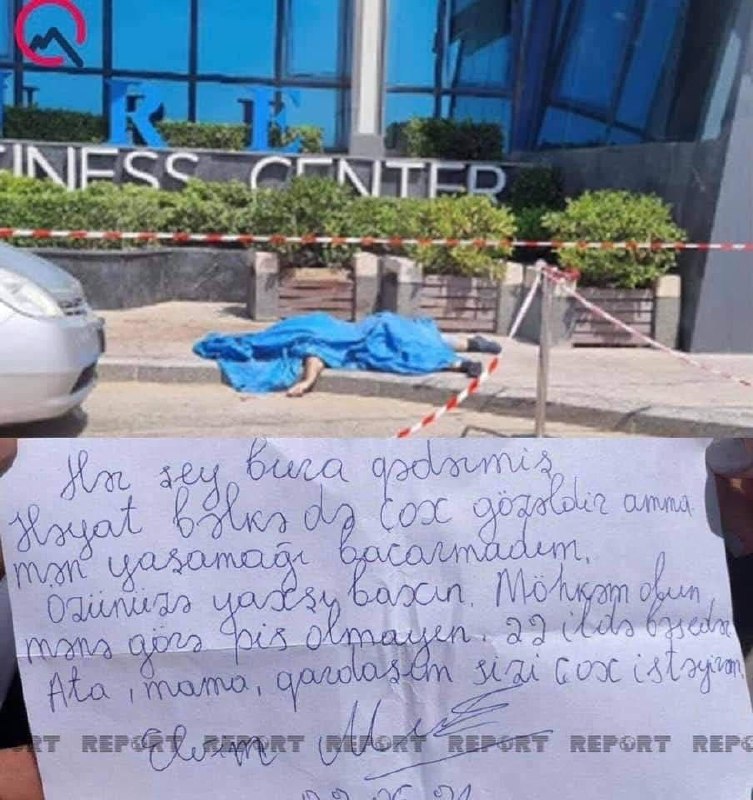 I R E
INESS CENTER
Hər şey bura qədərmiş
Həyat bəlkə də çox gözəldir amma
mən yaşamağı bacarmadım.
Özünüzə yaxşı baxın, Möhkəm olun,
mənə görə pis olmayın. 22 ildə bəsədi
Ata, mama, qardaşım sizi çox istəyirəm
REPORT REPORT REPORT REPORT REPORT REPO